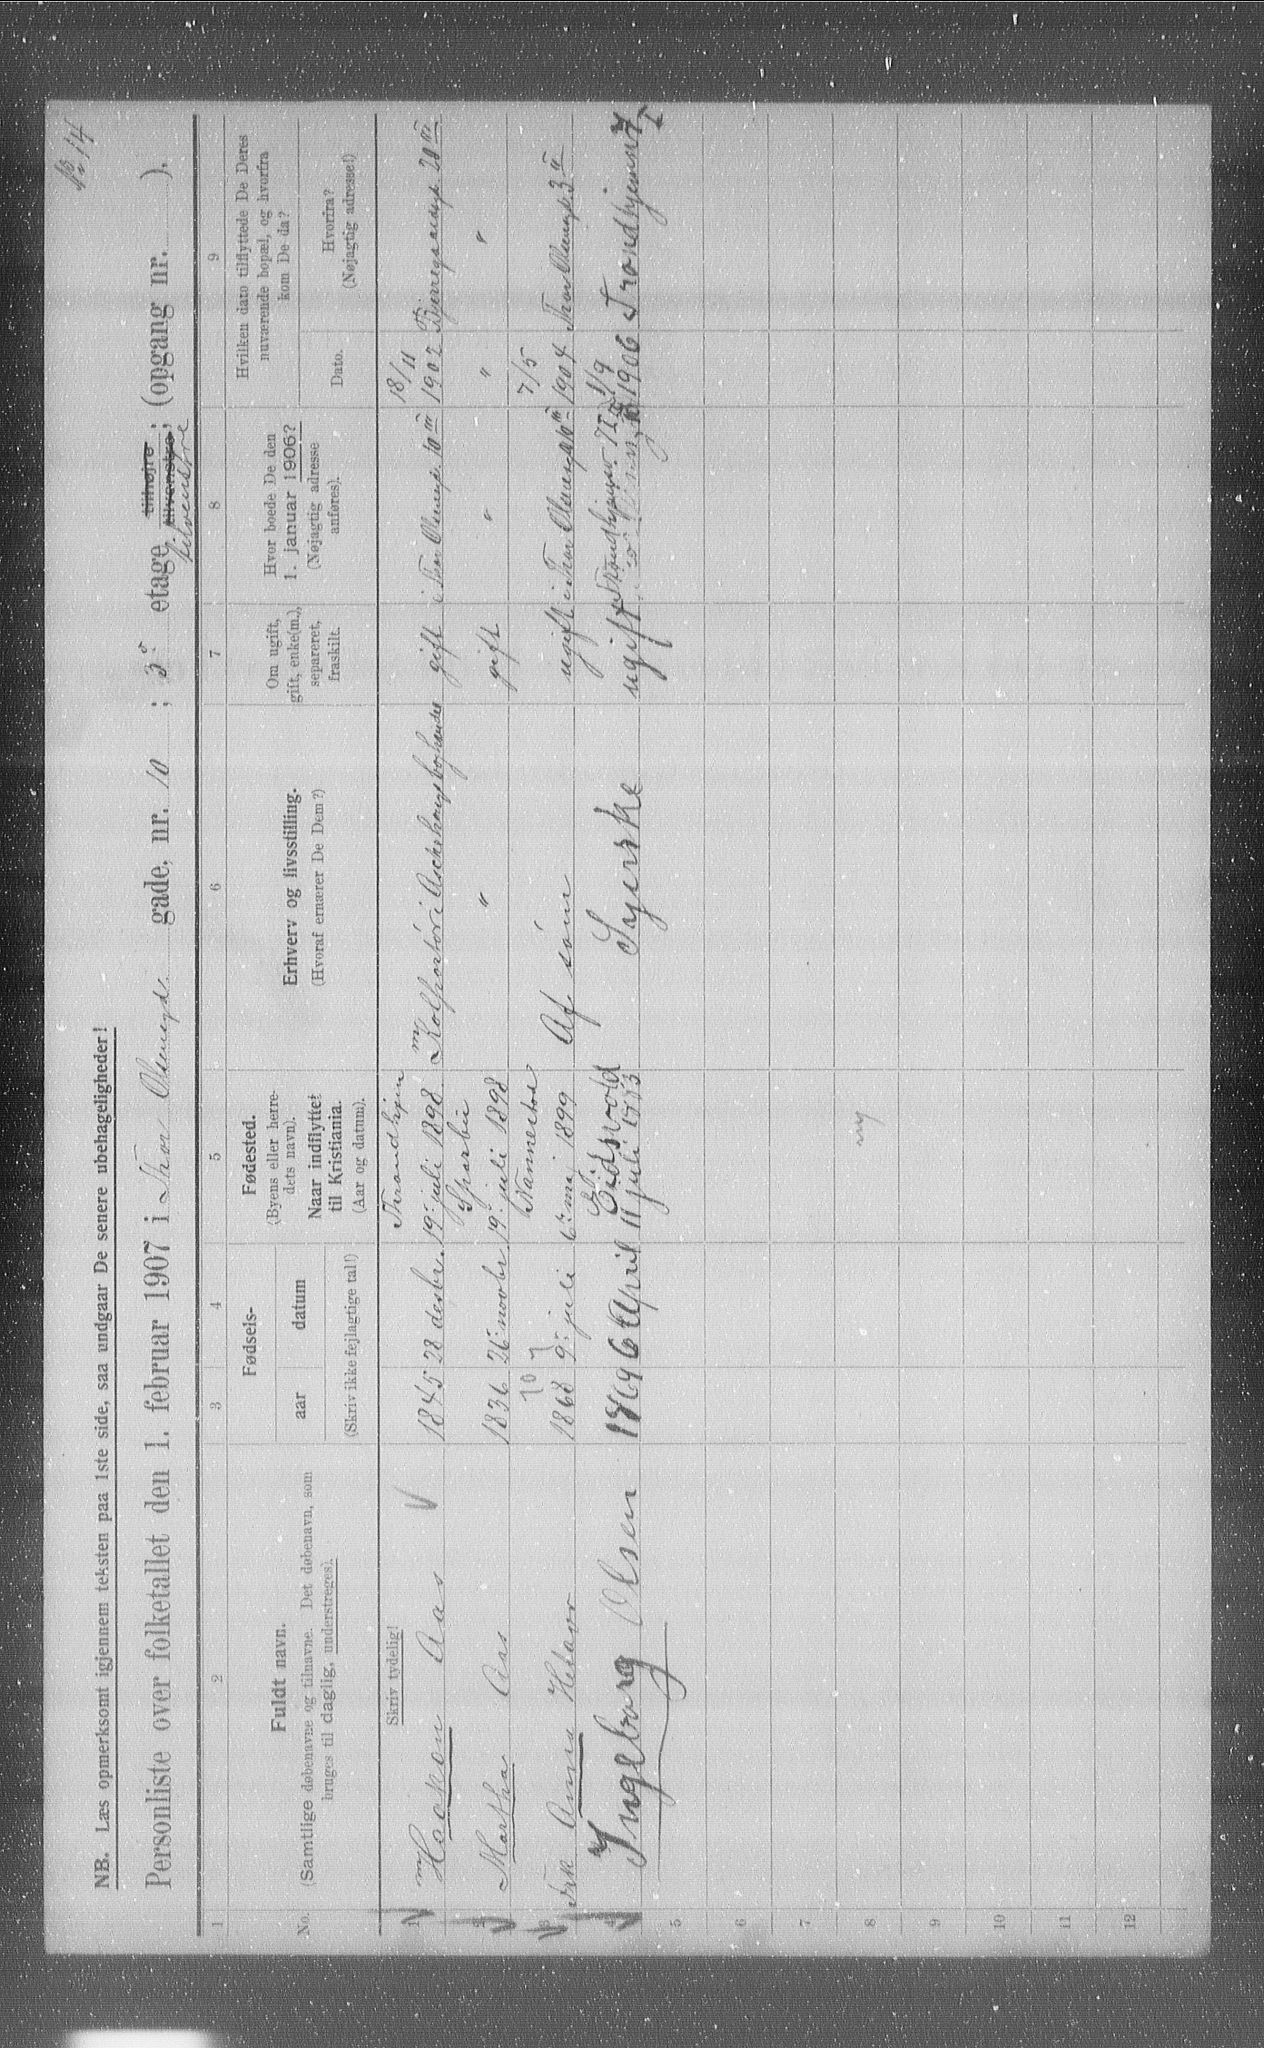 № 14
NB. Læs opmerksomt igjennem teksten paa 1ste side, saa undgaar De senere ubehageligheder!
Personliste over folketallet den 1. februar 1907 i Thor Olsensgd. gade, nr. 10 ; 3º etage, tilhøjre tilvenstre; (opgang nr. ).
tilvenstre
1 2 3 4 5 6 7 8 9
No.
Fuldt navn.
(Samtlige døbenavne og tilnavne. Det døbenavn, som
bruges til daglig, understreges).
Fødsels-
aar datum
(Skriv ikke fejlagtige tal!)
Fødested.
(Byens eller herre-
dets navn).
Naar indflyttet
til Kristiania.
(Aar og datum).
Erhverv og livsstilling.
(Hvoraf ernærer De Dem?)
Om ugift,
gift, enke(m.),
separeret,
fraskilt.
Hvor boede De den
1. januar 1906?
(Nøjagtig adresse
anføres).
Hvilken dato tilflyttede De Deres
nuværende bopæl, og hvorfra
kom De da?
Dato.
Hvorfra?
(Nøjagtig adresse!)
Skriv tydelig!
Throndhjem 18/11
1 Haakon Aas 1845 28 desbr. 19. juli 1898 Kolportör i Aschehougs boghandel gift i Thor Olsensgd. 10 III 1902 Bjerregaardsgd. 20
Sparbu
2 Martha Aas 1836 26. novbr. 19. juli 1898 " gift " " "
Nannestad 7/5
3 Frk Anna 1868 9. juli 6. maj 1899 Af söm ugift i Thor Olsensgd. 10 III 1904 Thor Olsensgd. 3
Eidsvold 1/9
4 Ingeborg Olsen 1869 6 April 11 juli Syerske ugift 1906
5
6
7
8
9
10
11
12
ny